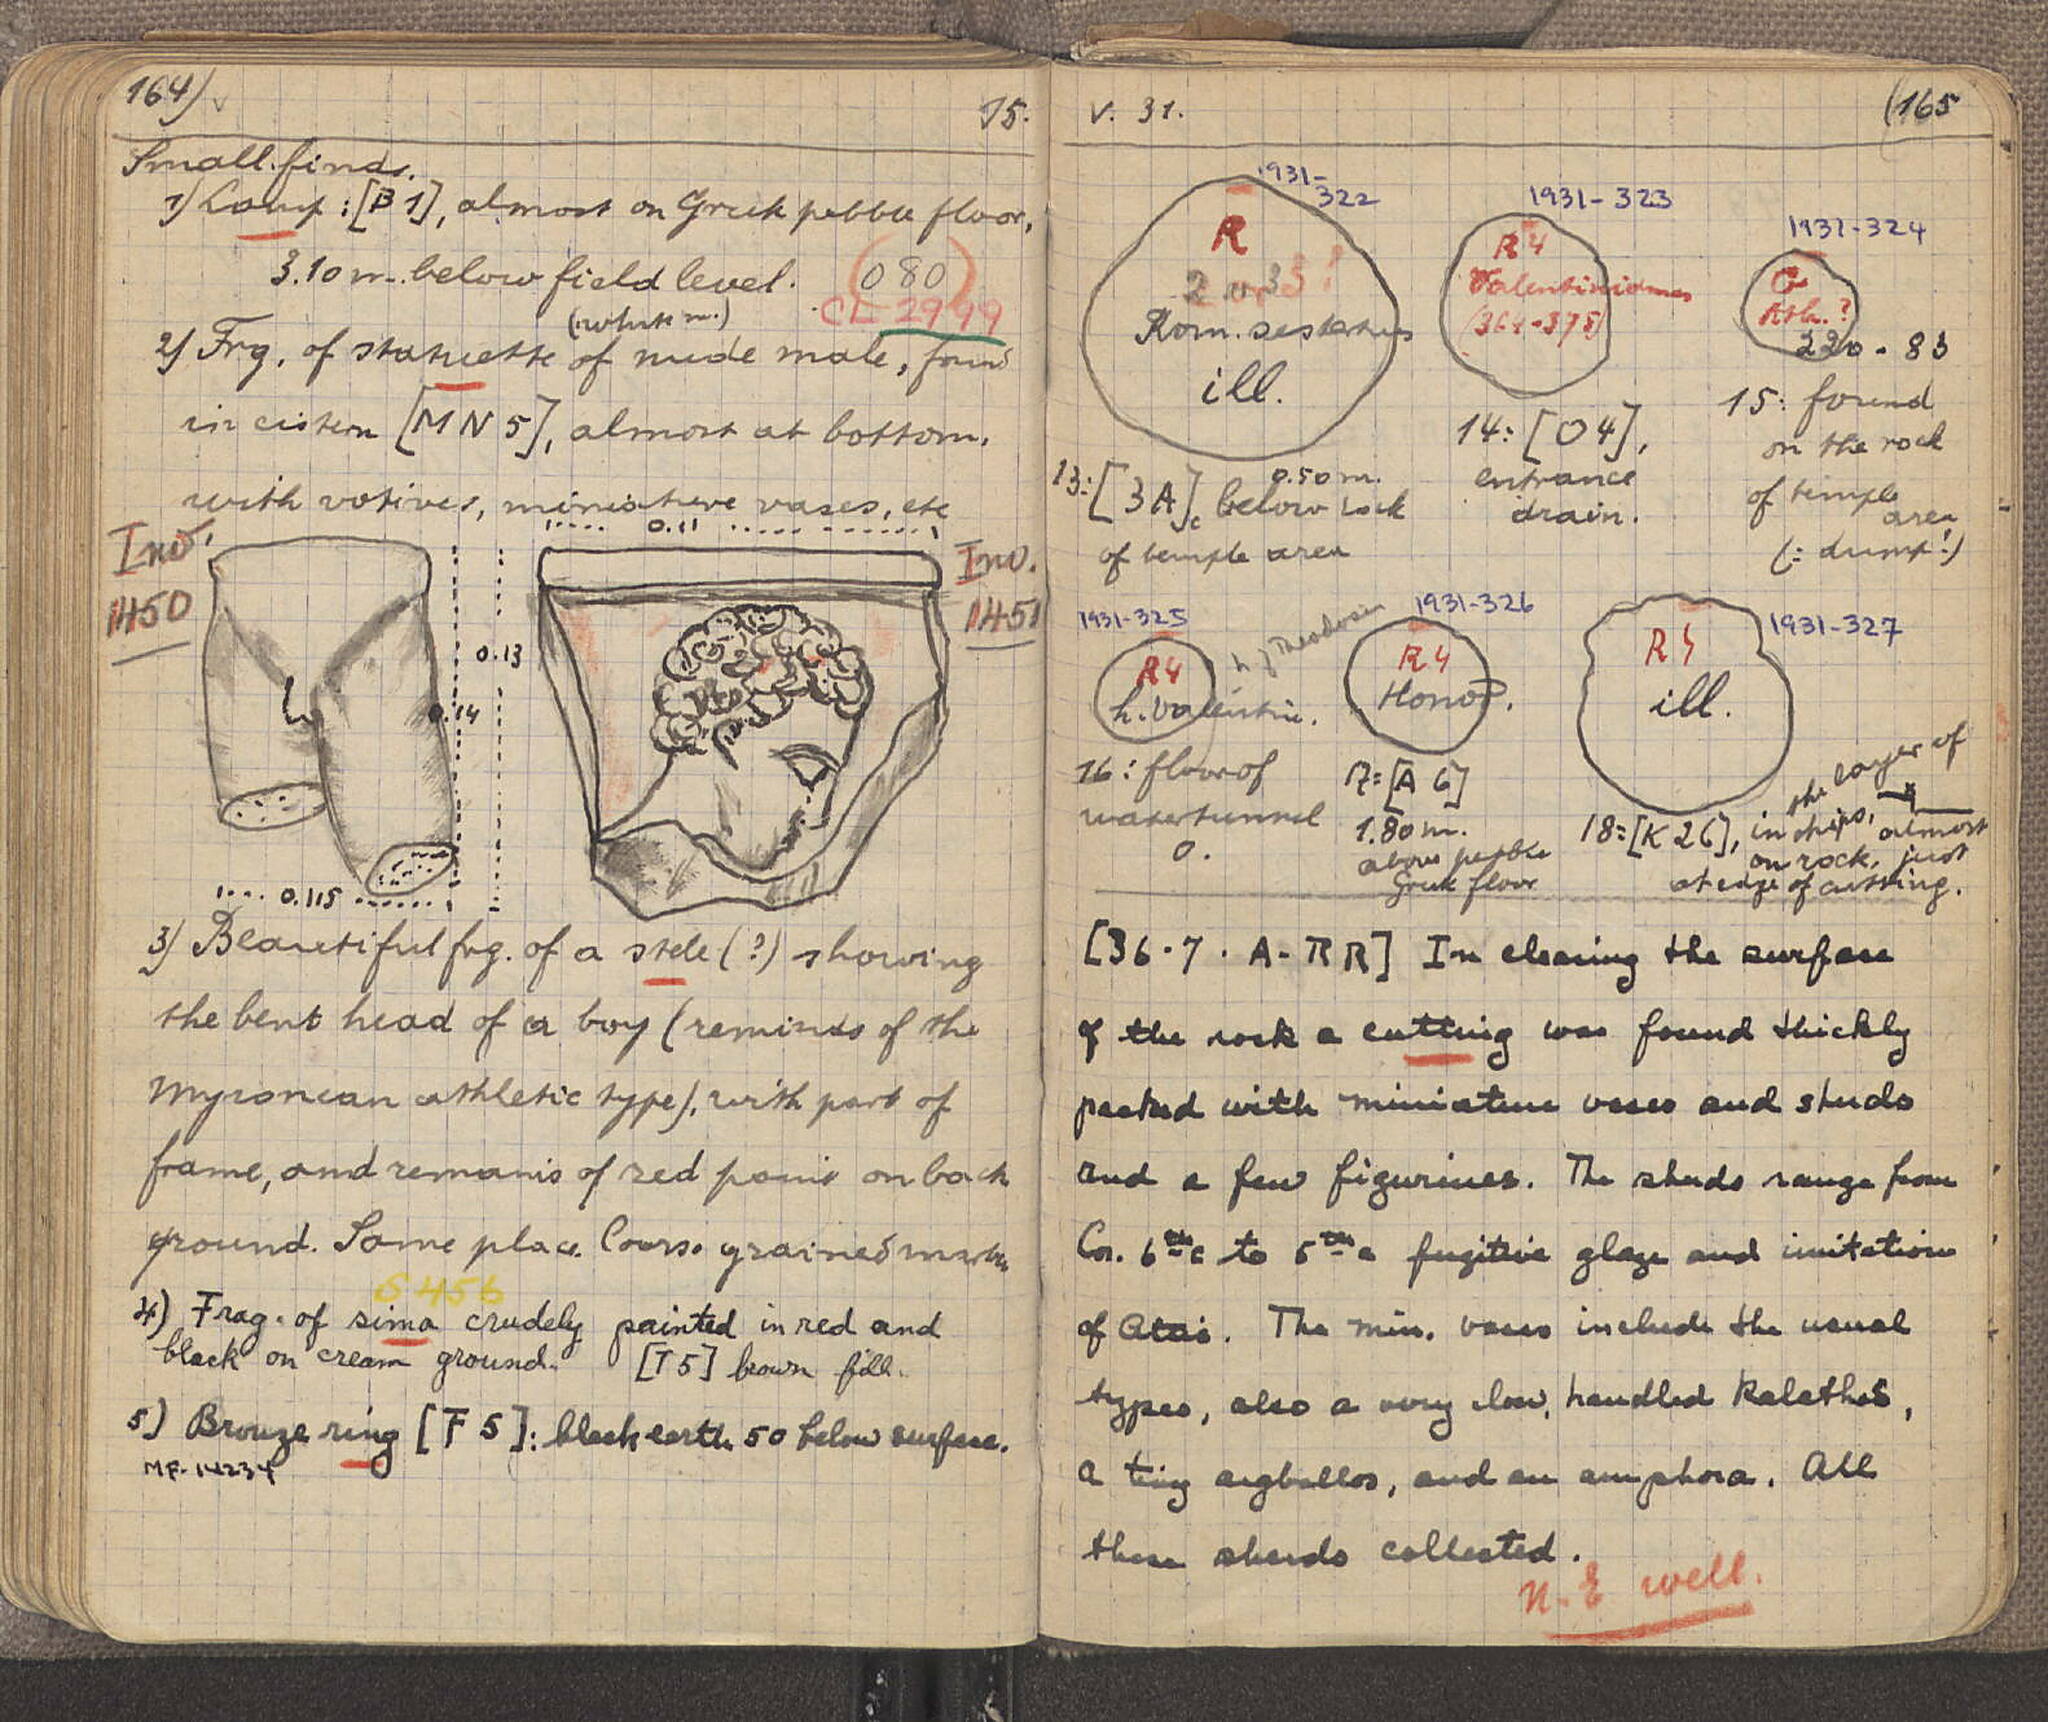 164)
15.
Small finds.
1) Lamp: [B 1], almost on Greek pebble floor,
3.10 m. below field level. (080)
CL 2999
(white m.)
2) Frg. of statuette of nude male, found
in cistern [MN 5], almost at bottom,
with votives, miniature vases, etc
0.11
Inv. 1450
Inv. 1451
0.13
0.14
0.115
3) Beautiful frg. of a stele (?) showing
the bent head of a boy (reminds of the
Myronean athletic type), with part of
frame, and remains of red paint on back
ground. Same place. Coarse grained marble
S 456
4) Frag. of sima crudely painted in red and
black on cream ground. [T 5] brown fill.
5) Bronze ring [F 5]: black earth 50 below surface.
MF-14234
V. 31.
(165
1931-322
R
2 or 3?
Rom. sestertius
ill.
1931-323
R4
Valentinianus
(364-375)
1931-324
G
Ath.?
220-83
13: [3A], 0.50 m.
below rock
of temple area
14: [O4],
entrance
drain.
15: found
on the rock
of temple
area
(: dump!)
1931-325
R4
h. Valentin.
h of Theodosius
1931-326
R4
Honor.
1931-327
R4
ill.
16: floor of
watertunnel
0.
17: [A 6]
1.80 m.
above pebble
Greek floor
18: [K 26], in the layer of
chips, almost
on rock, just
at edge of cutting.
[36-7 · A-RR] In clearing the surface
of the rock a cutting was found thickly
packed with miniature vases and sherds
and a few figurines. The sherds range from
Cor. 6th c to 5th c fugitive glaze and imitation
of Attic. The min. vases include the usual
types, also a very low, handled Kalathos,
a tiny aryballos, and an amphora. All
these sherds collected.
N.E well.